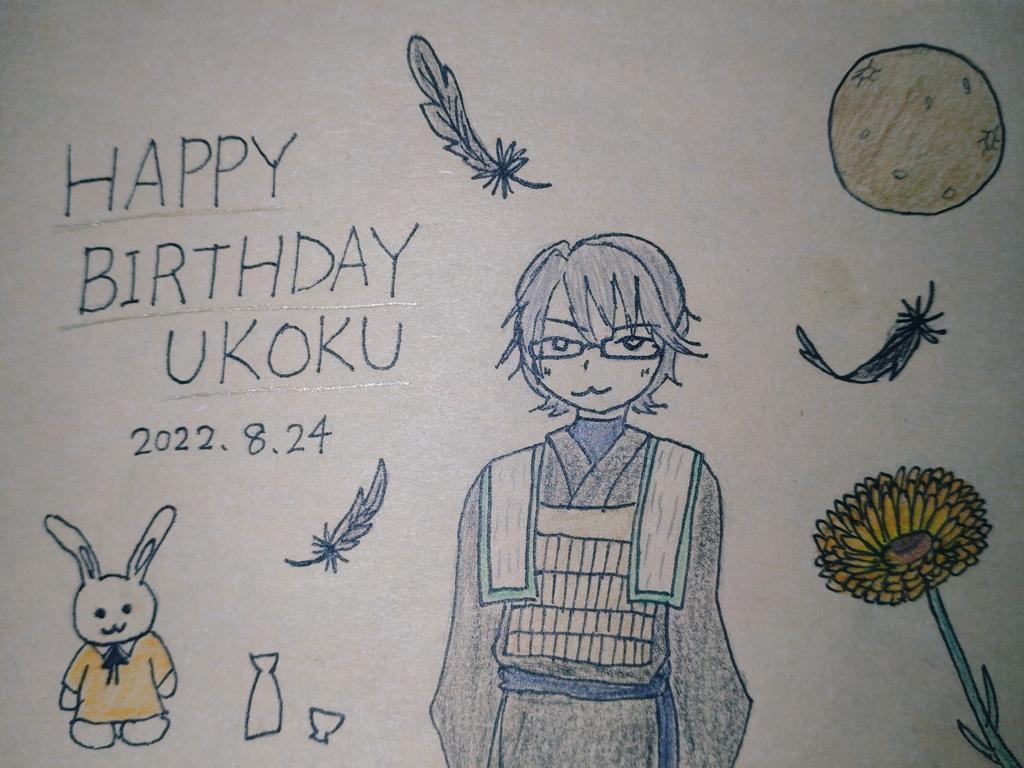 HAPPY
BIRTHDAY
UKOKU
2022.8.24